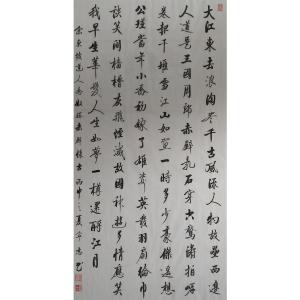 大江東去浪淘尽千古風流人物故壘西邊
人道是三國周郎赤壁乱石穿空驚濤拍岸
卷起千堆雪江山如畫一時多少豪傑遥想
公瑾當年小喬初嫁了雄姿英發羽扇綸巾
談笑間檣櫓灰飛煙滅故國神遊多情應笑
我早生華髮人生如夢一樽還酹江月
念奴嬌赤壁懷古丙申之夏